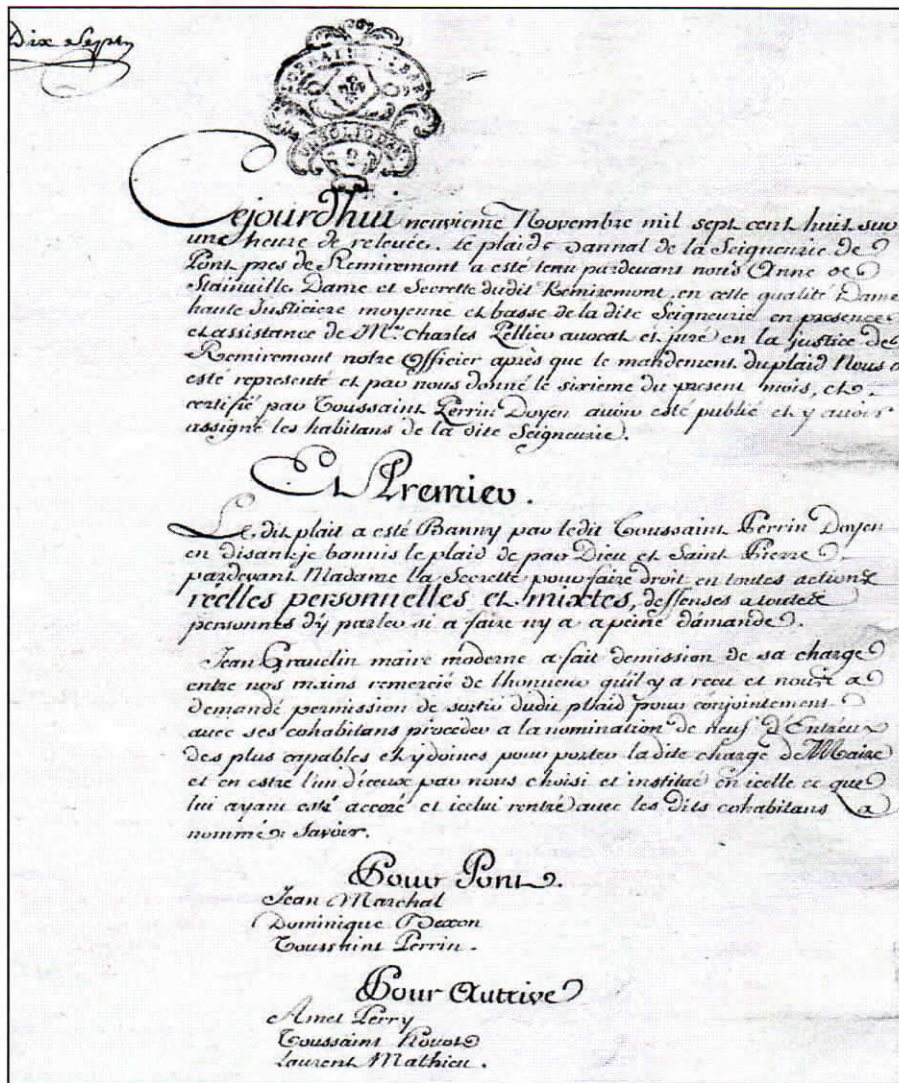 Dix Sept
Cejourdhui neuvieme Novembre mil sept cent huit sur
une heure de relevée. le plaide Bannal de la Seigneurie de
Pont pres de Remiremont a esté tenu pardevant nous Anne de
Stainville Dame et Secrette dudit Remiremont en cette qualité Dame
haute Justiciere moyenne et basse de la dite Seigneurie en presence
et assistance de Mre Charles avocat et juré en la justice de
Remiremont notre Officier après que le mandement du plaid Nous a
esté representé et par nous donné le sixieme du present mois, et
certifié par Toussaint Perrin Doyen avoir esté publié et y avoir
assigné les habitans de la dite Seigneurie.
Et Premier.
Le dit plait a esté Banny par ledit Toussaint Perrin Doyen
en disant je bannis le plaid de par Dieu et Saint Pierre
pardevant Madame la Secrette pour faire droit en toutes actions
réelles personnelles et mixtes, deffenses a toutes
personnes dy parler si a faire ny a a peine damande.
Jean Gravelin maire moderne a fait demission de sa charge
entre nos mains remercié de lhonneur qu'il y a recu et nous a
demandé permission de sortir dudit plaid pour conjointement
avec ses cohabitans proceder a la nomination de neuf d'Entreux
des plus capables et ydoines pour porter la dite charge de Maire
et en estre l'un diceux par nous choisi et institué en icelle ce que
lui ayant esté accoré et icelui rentré avec les dits cohabitans a
nommé Savoir.
Pour Pont.
Jean Marchal
Dominique
Toussaint Perrin.
Pour Autrive
Amet Perry
Toussaint
Laurent Mathieu.